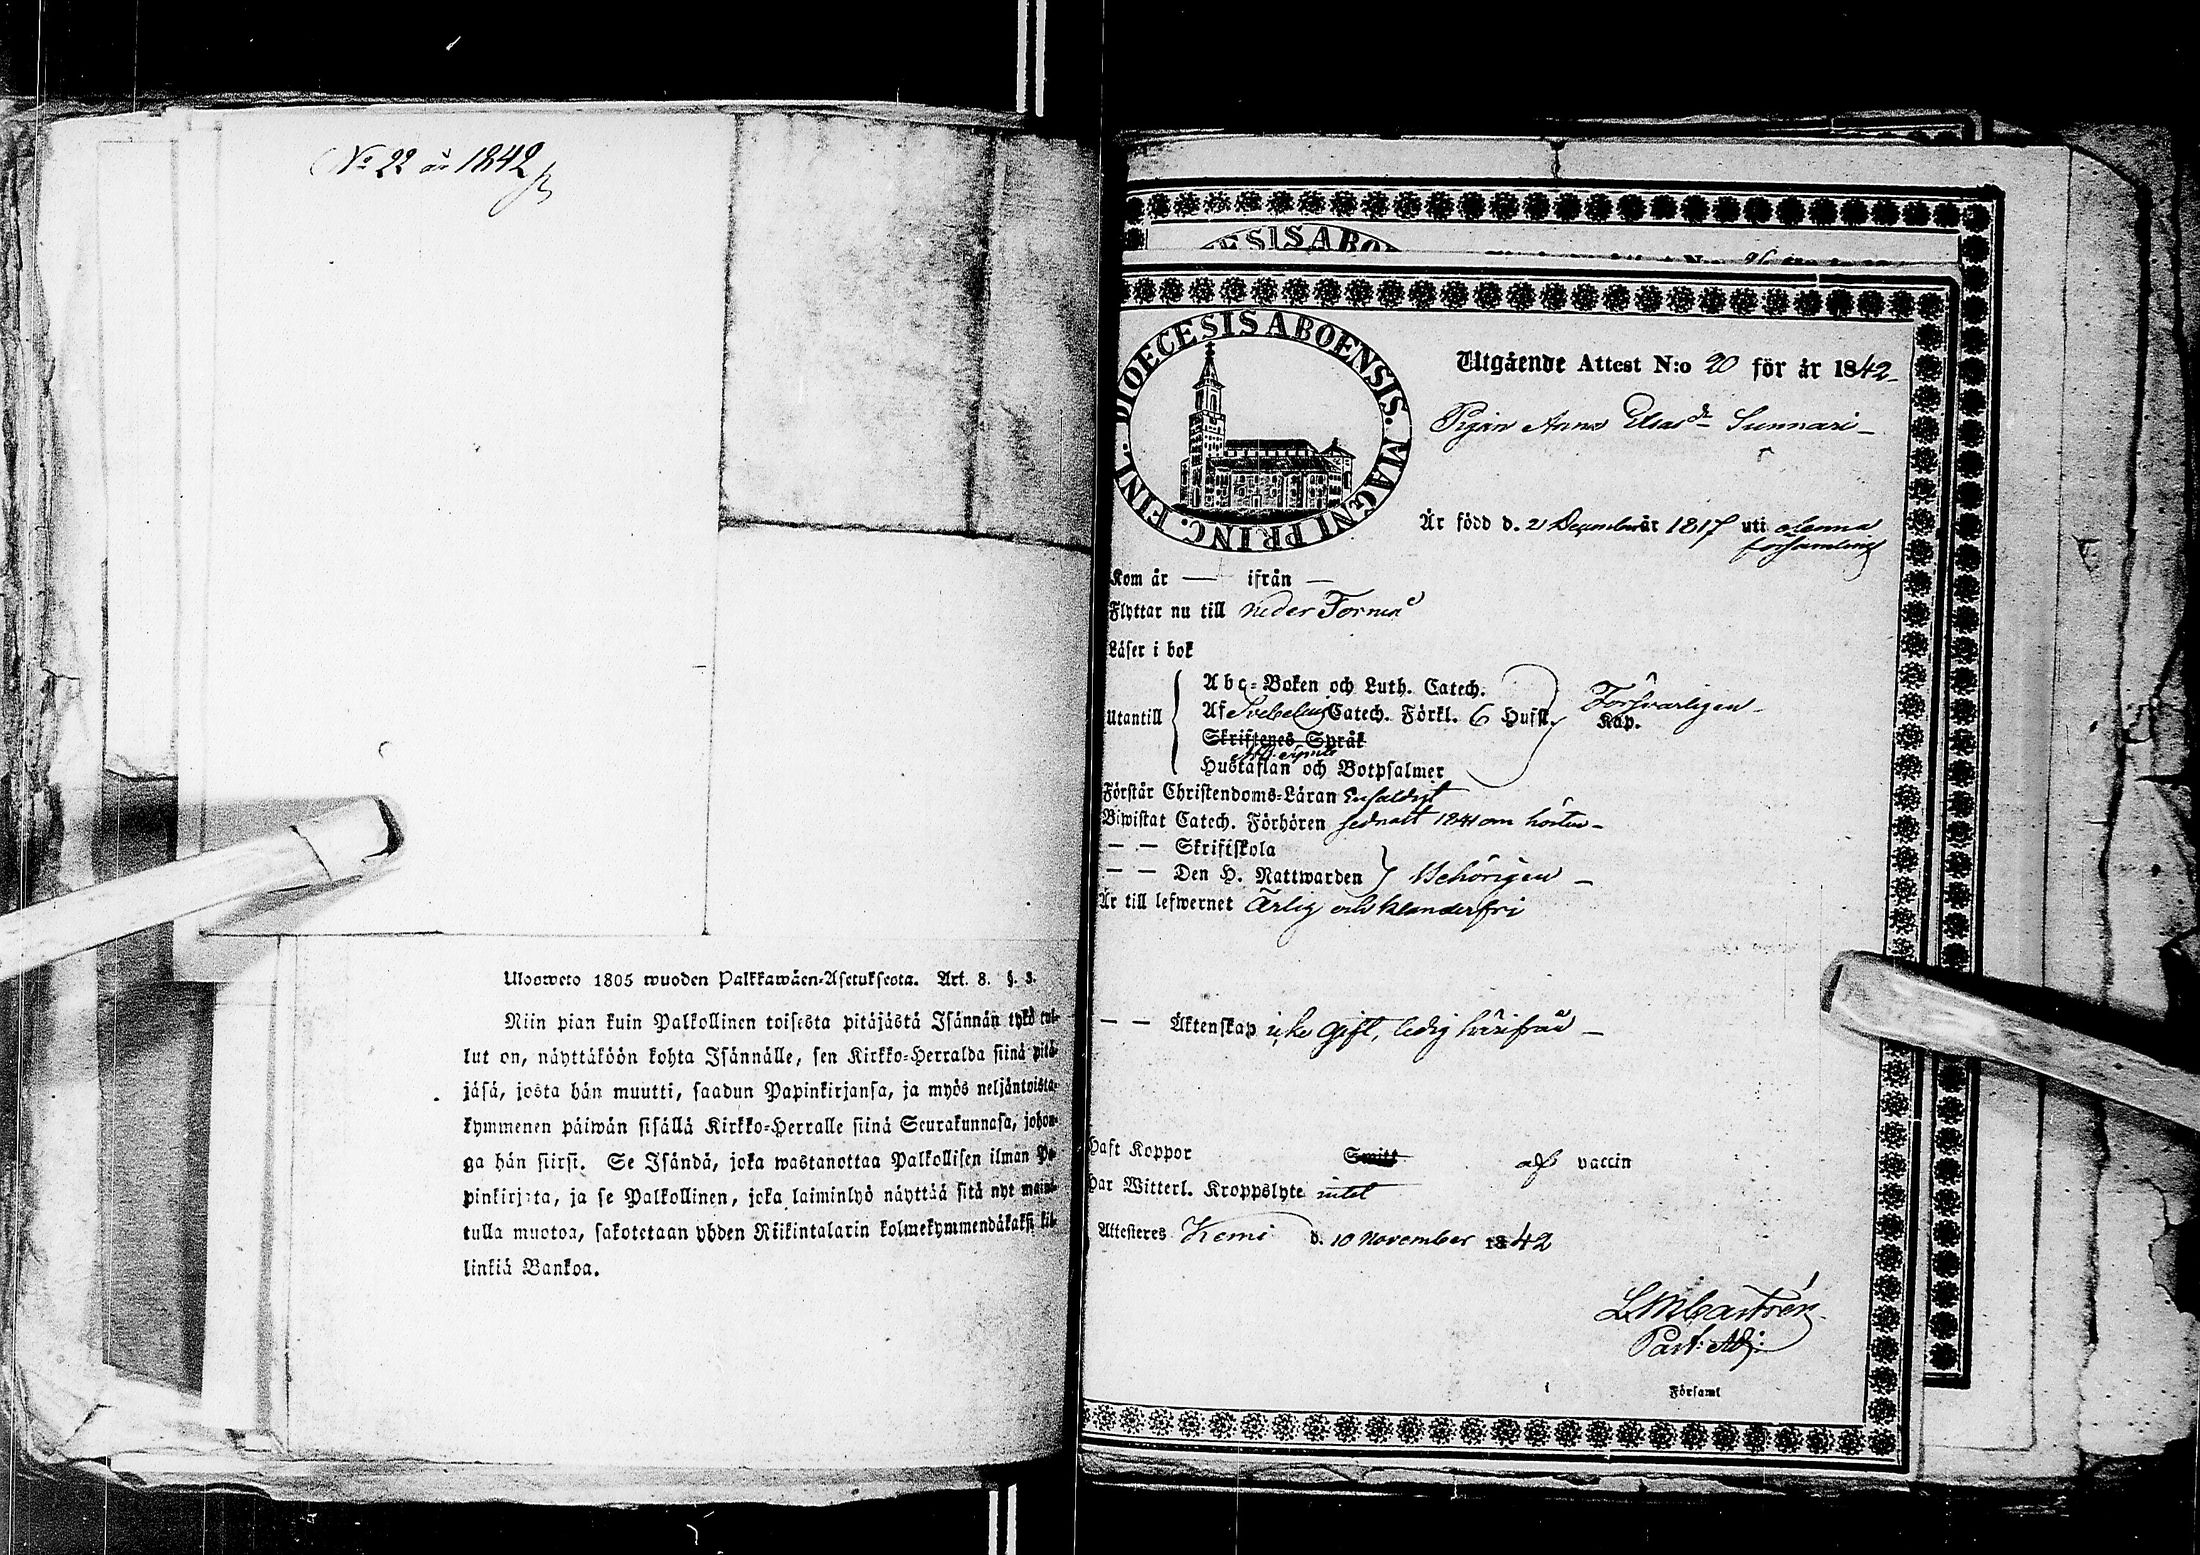 No 22 år 1842
Ulosweto 1805 wuoden Palkkawäen-Asetukseota. Art. 8. §. 3.
Niin pian kuin Palkollinen toisesta pitäjästä Isännän tykö tul-
lut on, näyttäköön kohta Isännälle, sen Kirkko-Herralda siinä pitä-
jäsä, josta hän muutti, saadun Papinkirjansa, ja myös neljäntoista-
kymmenen päiwän sisällä Kirkko-Herralle siinä Seurakunnasa, johon-
ga hän siirsi. Se Isändä, joka wastanottaa Palkollisen ilman Pa-
pinkirjata, ja se Palkollinen, joka laiminlyö näyttää sitä nyt maini-
tulla muotoa, sakotetaan yhden Riikintalarin kolmekymmendäkaksi kil-
linkiä Bankoa.
ESIS ABO
FINL. DIOECESIS ABOENSIS. MAGNI PRINC.
Utgående Attest N:o 20 för år 1842
Pigan Anna Elias dr Sunnari
Är född d. 21 December år 1817 uti denna
församling
Kom år — ifrån —
Flyttar nu till Neder Torneå
Läser i bok
Utantill
Abc-Boken och Luth. Catech.
Af Svebelii Catech. Förkl. 6 Hufst. Försvarligen
Kap.
Skriftenes Språk
Hustaflan och Botpsalmer
Förstår Christendoms-Läran Enfaldigt
Biwistat Catech. Förhören sednast 1841 om hösten
— — Skriftskola
— — Den H. Nattwarden Behörigen
Är till lefwernet Ärlig och klanderfri
— — Äktenskap icke gift, ledig härifrån
Haft Koppor Smitt af vaccin
Har Witterl. Kroppslyte intet
Attesteres Kemi d. 10 November 1842
L M Castrén
Past: Adj:
i Församl